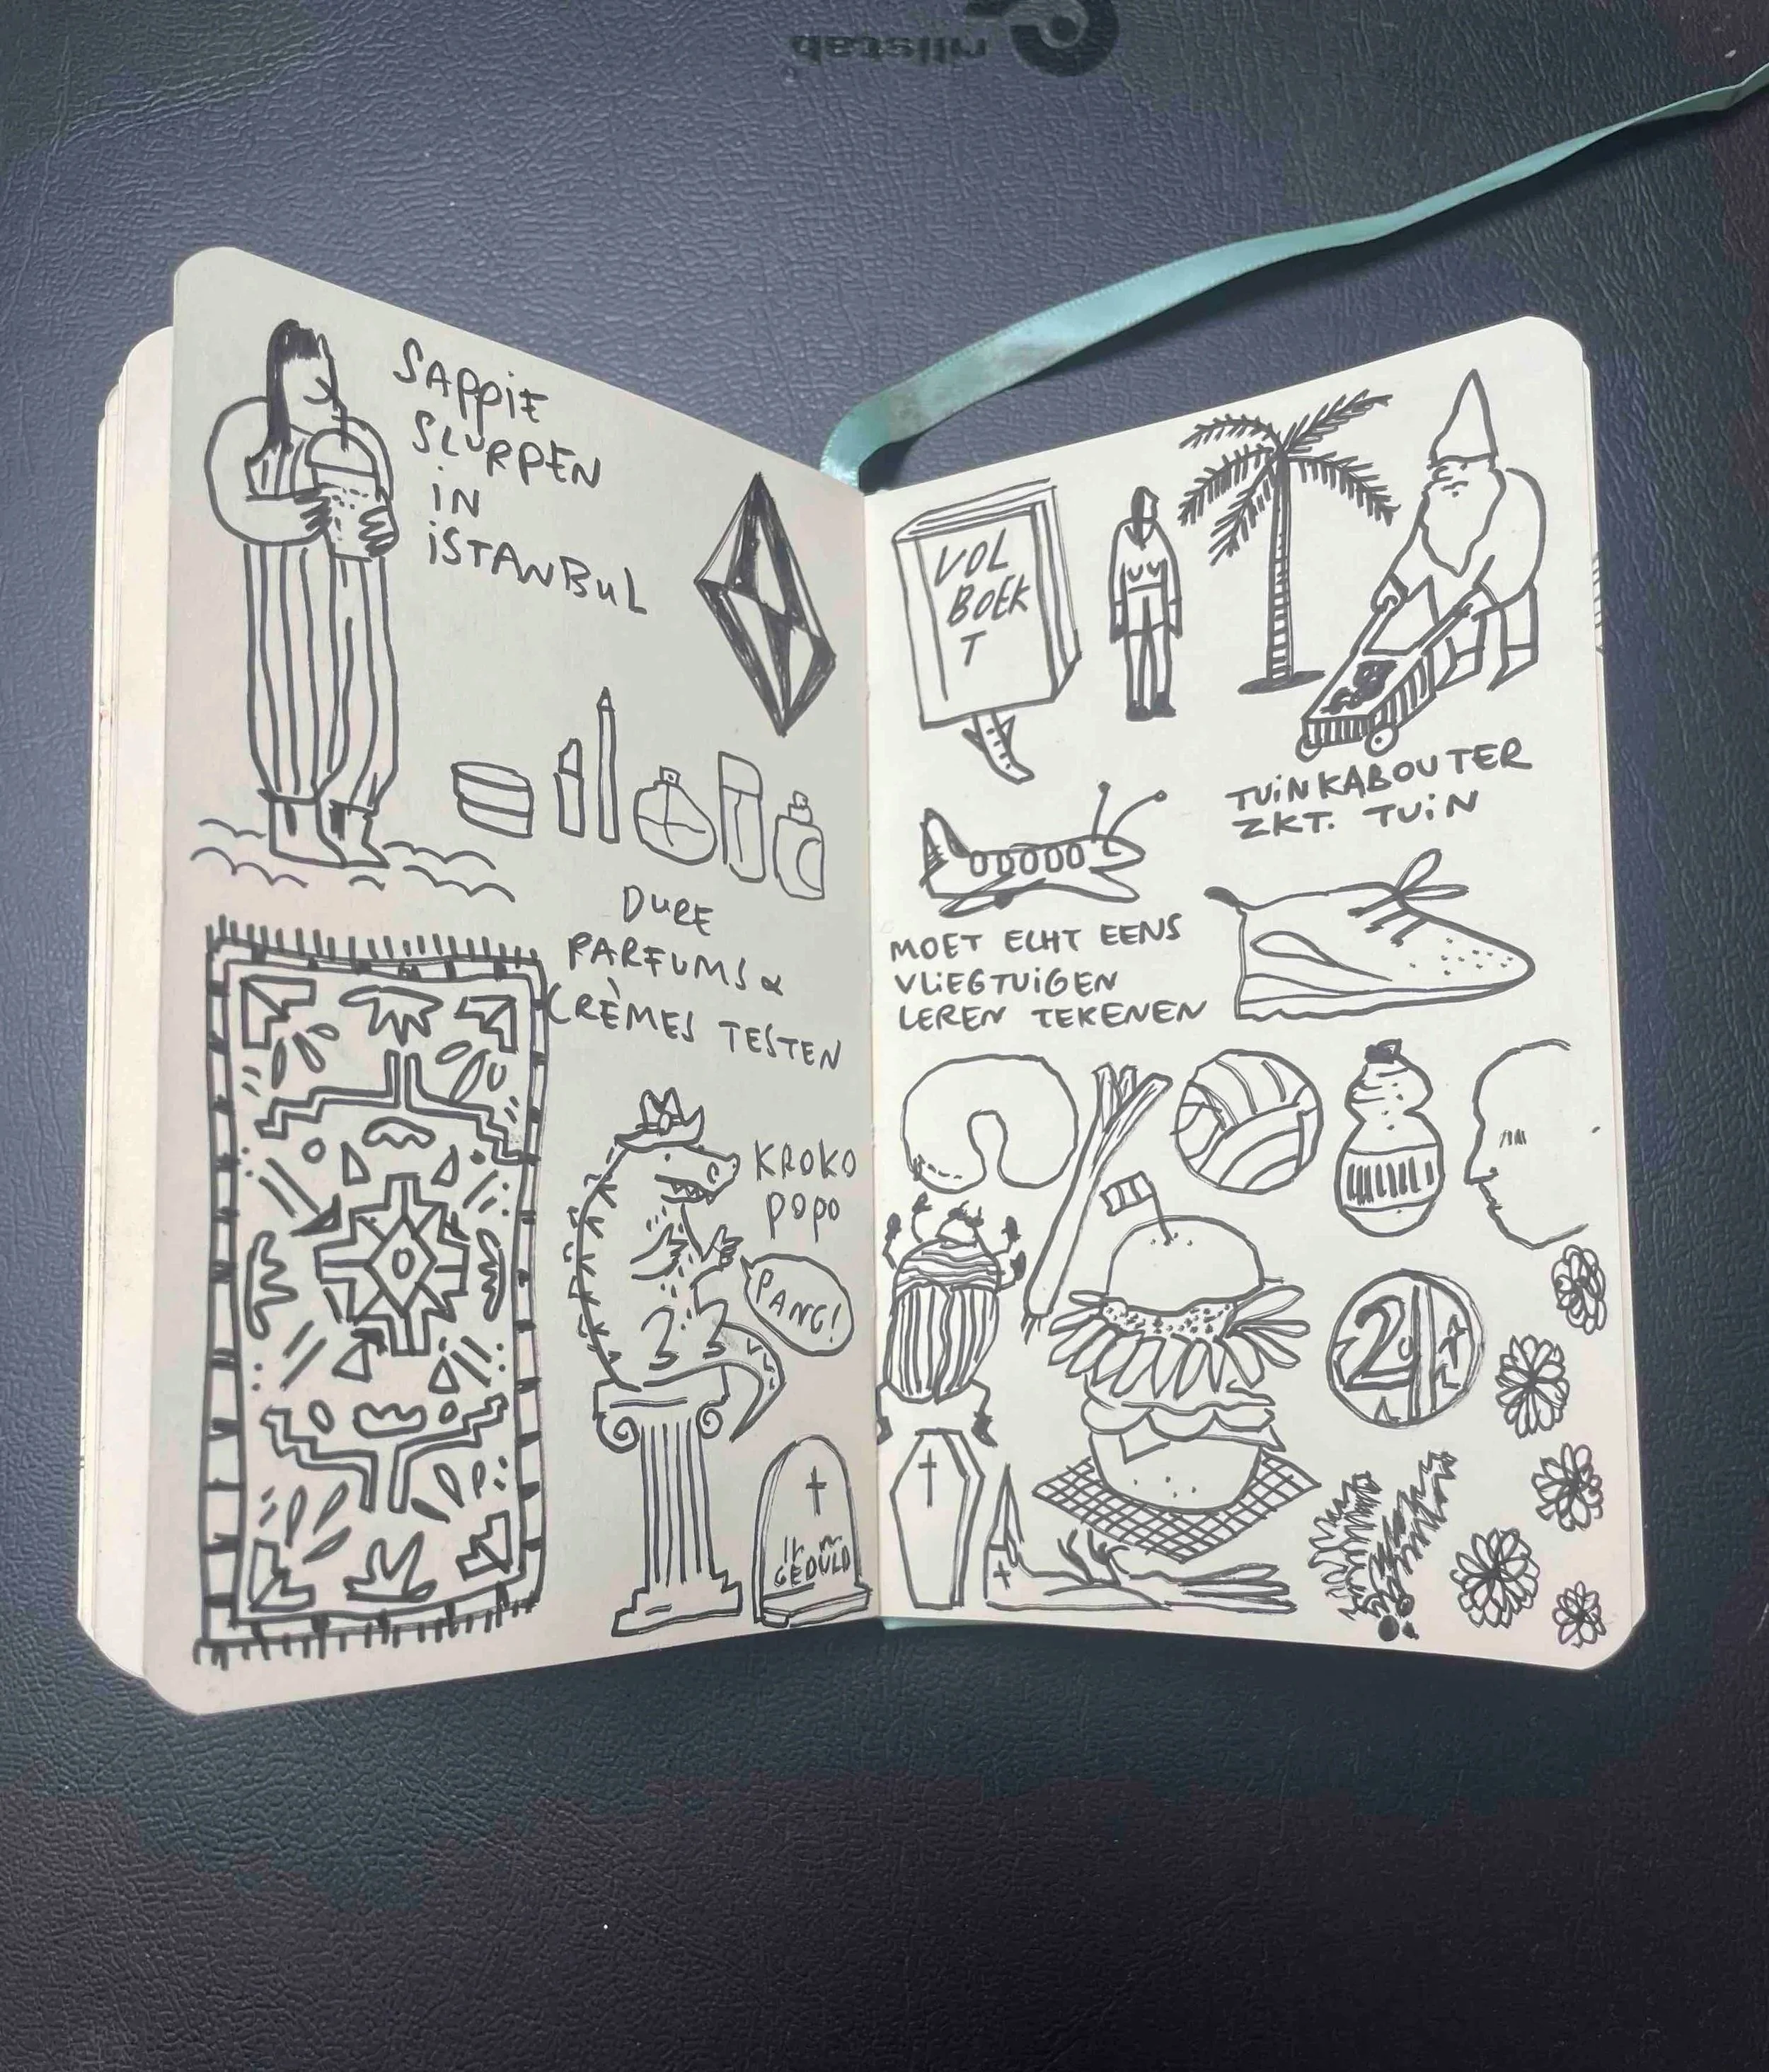 SAPPIE
SLURPEN
iN
iSTANBUL
DURE
PARFUMS &
CRÈMES TESTEN
KROKO
POPO
PANG!
GEDULD
VOL
BOEK
T
TUiNKABOUTER
ZKT. TUiN
MOET ECHT EENS
VLiEGTUiGEN
LEREN TEKENEN